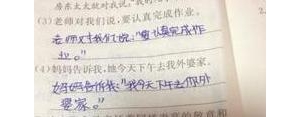 房东太太就对我说,"我的
(3)老师对我们说,要认真完成作业。
老师对我们说:"要认真完成作
业。"
(4)妈妈告诉我,她今天下午去我外婆家。
妈妈告诉我:"我今天下午去你外
婆家。"